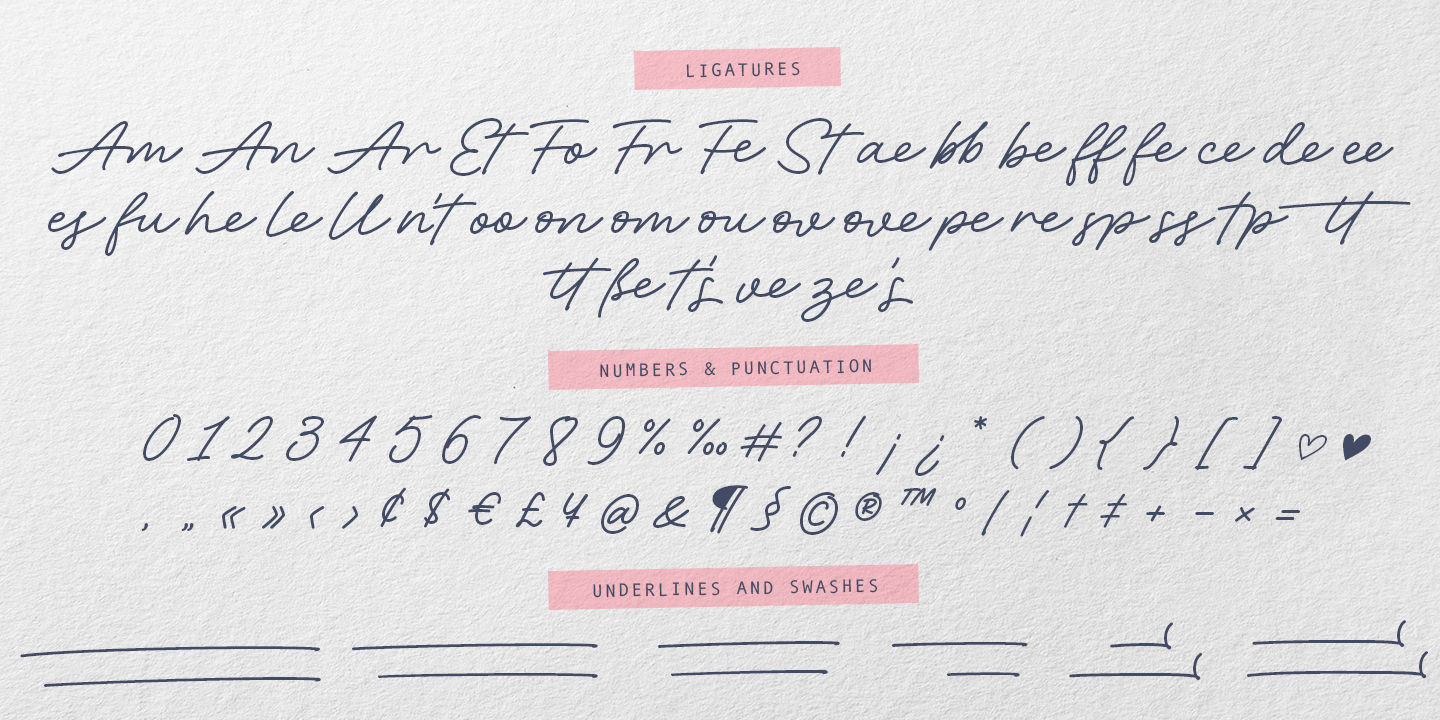 LIGATURES
Am An Ar Et Fo Fr Fe St ae bb be ff fe ce de ee
es fu he le ll n't oo on om ou ov ove pe re sp ss tp tt
tt ße t's ve ze 's
NUMBERS & PUNCTUATION
0 1 2 3 4 5 6 7 8 9 % ‰ # ? ! ¡ ¿ * ( ) { } [ ] ♡ ♥
‚ „ « » ‹ › ₵ $ € £ ¥ @ & ¶ § © ® ™ ° / ¦ † ‡ + − × =
UNDERLINES AND SWASHES